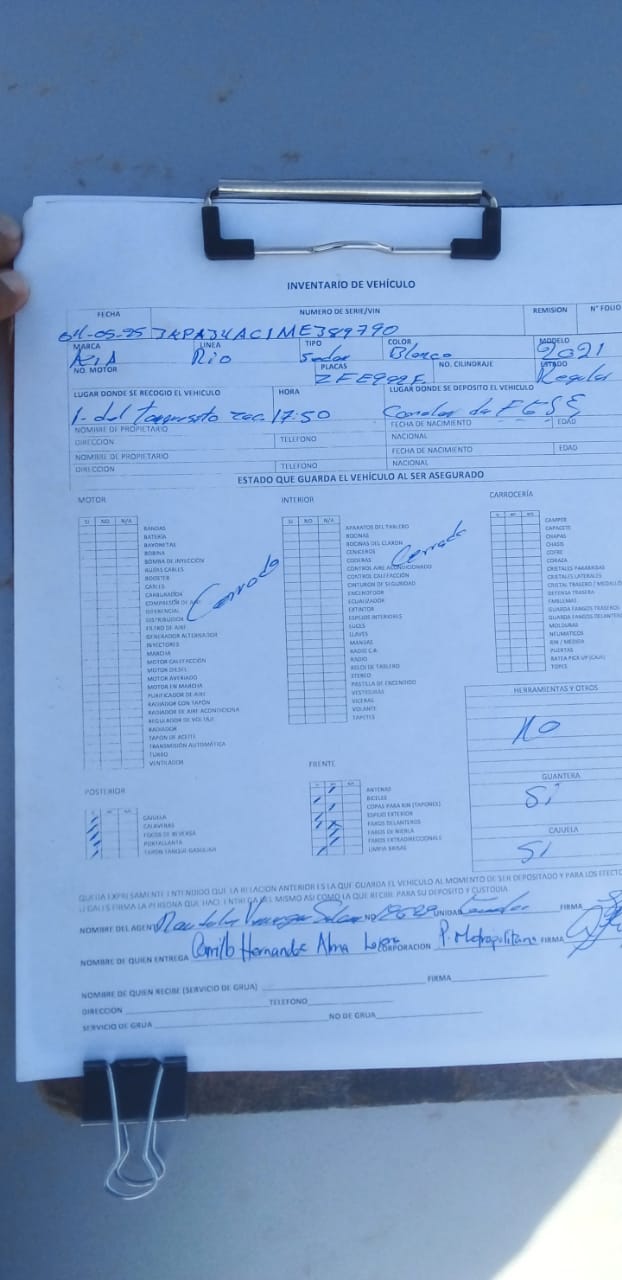 INVENTARIO DE VEHÍCULO
FECHA NUMERO DE SERIE/VIN REMISION N° FOLIO
MARCA LINEA TIPO COLOR MODELO
KIA Rio Sedan Blanco 2021
NO. MOTOR PLACAS NO. CILINDRAJE ESTADO
Regular
LUGAR DONDE SE RECOGIO EL VEHICULO HORA LUGAR DONDE SE DEPOSITO EL VEHICULO
17:50
NOMBRE DE PROPIETARIO FECHA DE NACIMIENTO EDAD
DIRECCION TELEFONO NACIONAL
NOMBRE DE PROPIETARIO FECHA DE NACIMIENTO EDAD
DIRECCION TELEFONO NACIONAL
ESTADO QUE GUARDA EL VEHÍCULO AL SER ASEGURADO
MOTOR INTERIOR CARROCERÍA
SI NO N/A
SI NO N/A
BANDAS
BATERIA
BAYONETAS
BOBINA
BOMBA DE INYECCION
BUJIAS CABLES
BOOSTER
CABLES
CARBURADOR
COMPRESIÓN DE AIRE
DIFERENCIAL
DISTRIBUIDOR
FILTRO DE AIRE
GENERADOR ALTERNADOR
INYECTORES
MARCHA
MOTOR CALEFACCIÓN
MOTOR DIESEL
MOTOR AVERIADO
MOTOR EN MARCHA
PURIFICADOR DE AIRE
RADIADOR CON TAPÓN
RADIADOR DE AIRE ACONDICIONA
REGULADOR DE VOLTAJE
RADIADOR
TAPON DE ACEITE
TRANSMISIÓN AUTOMÁTICA
TURBO
VENTILADOR
Cerrado
APARATOS DEL TABLERO
BOCINAS
BOCINAS DEL CLAXON
CENICEROS
CODERAS
CONTROL AIRE ACONDICIONADO
CONTROL CALEFACCIÓN
CINTURON DE SEGURIDAD
ENCENDEDOR
ECUALIZADOR
EXTINTOR
ESPEJOS INTERIORES
LUCES
LLAVES
MANIJAS
RADIO C.B.
RADIO
RELOJ DE TABLERO
STEREO
PASTILLA DE ENCENDIDO
VESTIDURAS
VICERAS
VOLANTE
TAPETES
Cerrado
CAMPER
CAPACETE
CHAPAS
CHASIS
COFRE
CORAZA
CRISTALES PARABRISAS
CRISTALES LATERALES
CRISTAL TRASERO / MEDALLO
DEFENSA TRASERA
EMBLEMAS
GUARDA FANGOS TRASEROS
GUARDA FANGOS DELANTER
MOLDURAS
NEUMATICOS
RIN / MEDIDA
PUERTAS
BATEA PICK UP (CAJA)
TOPES
HERRAMIENTAS Y OTROS
NO
GUANTERA
Si
CAJUELA
SI
POSTERIOR
CAJUELA
CALAVERAS
FOCOS DE REVERSA
PORTALLANTA
TAPON TANQUE GASOLINA
FRENTE
ANTENAS
BICELES
COPAS PARA RIN (TAPONES)
ESPEJO EXTERIOR
FAROS DELANTEROS
FAROS DE NIEBLA
FAROS EXTRADIRECCIONALE
LIMPIA BRISAS
QUEDA EXPRESAMENTE ENTENDIDO QUE LA RELACION ANTERIOR ES LA QUE GUARDA EL VEHICULO AL MOMENTO DE SER DEPOSITADO Y PARA LOS EFECTO
LEGALES FIRMA LA PERSONA QUE HACE ENTREGA DEL MISMO ASI COMO LA QUE RECIBE PARA SU DEPOSITO Y CUSTODIA
NOMBRE DEL AGENTE NO UNIDAD FIRMA
NOMBRE DE QUIEN ENTREGA Carrillo Hernandez Alma CORPORACION P. Metropolitana FIRMA
NOMBRE DE QUIEN RECIBE (SERVICIO DE GRUA) FIRMA
DIRECCION TELEFONO
SERVICIO DE GRUA NO DE GRUA